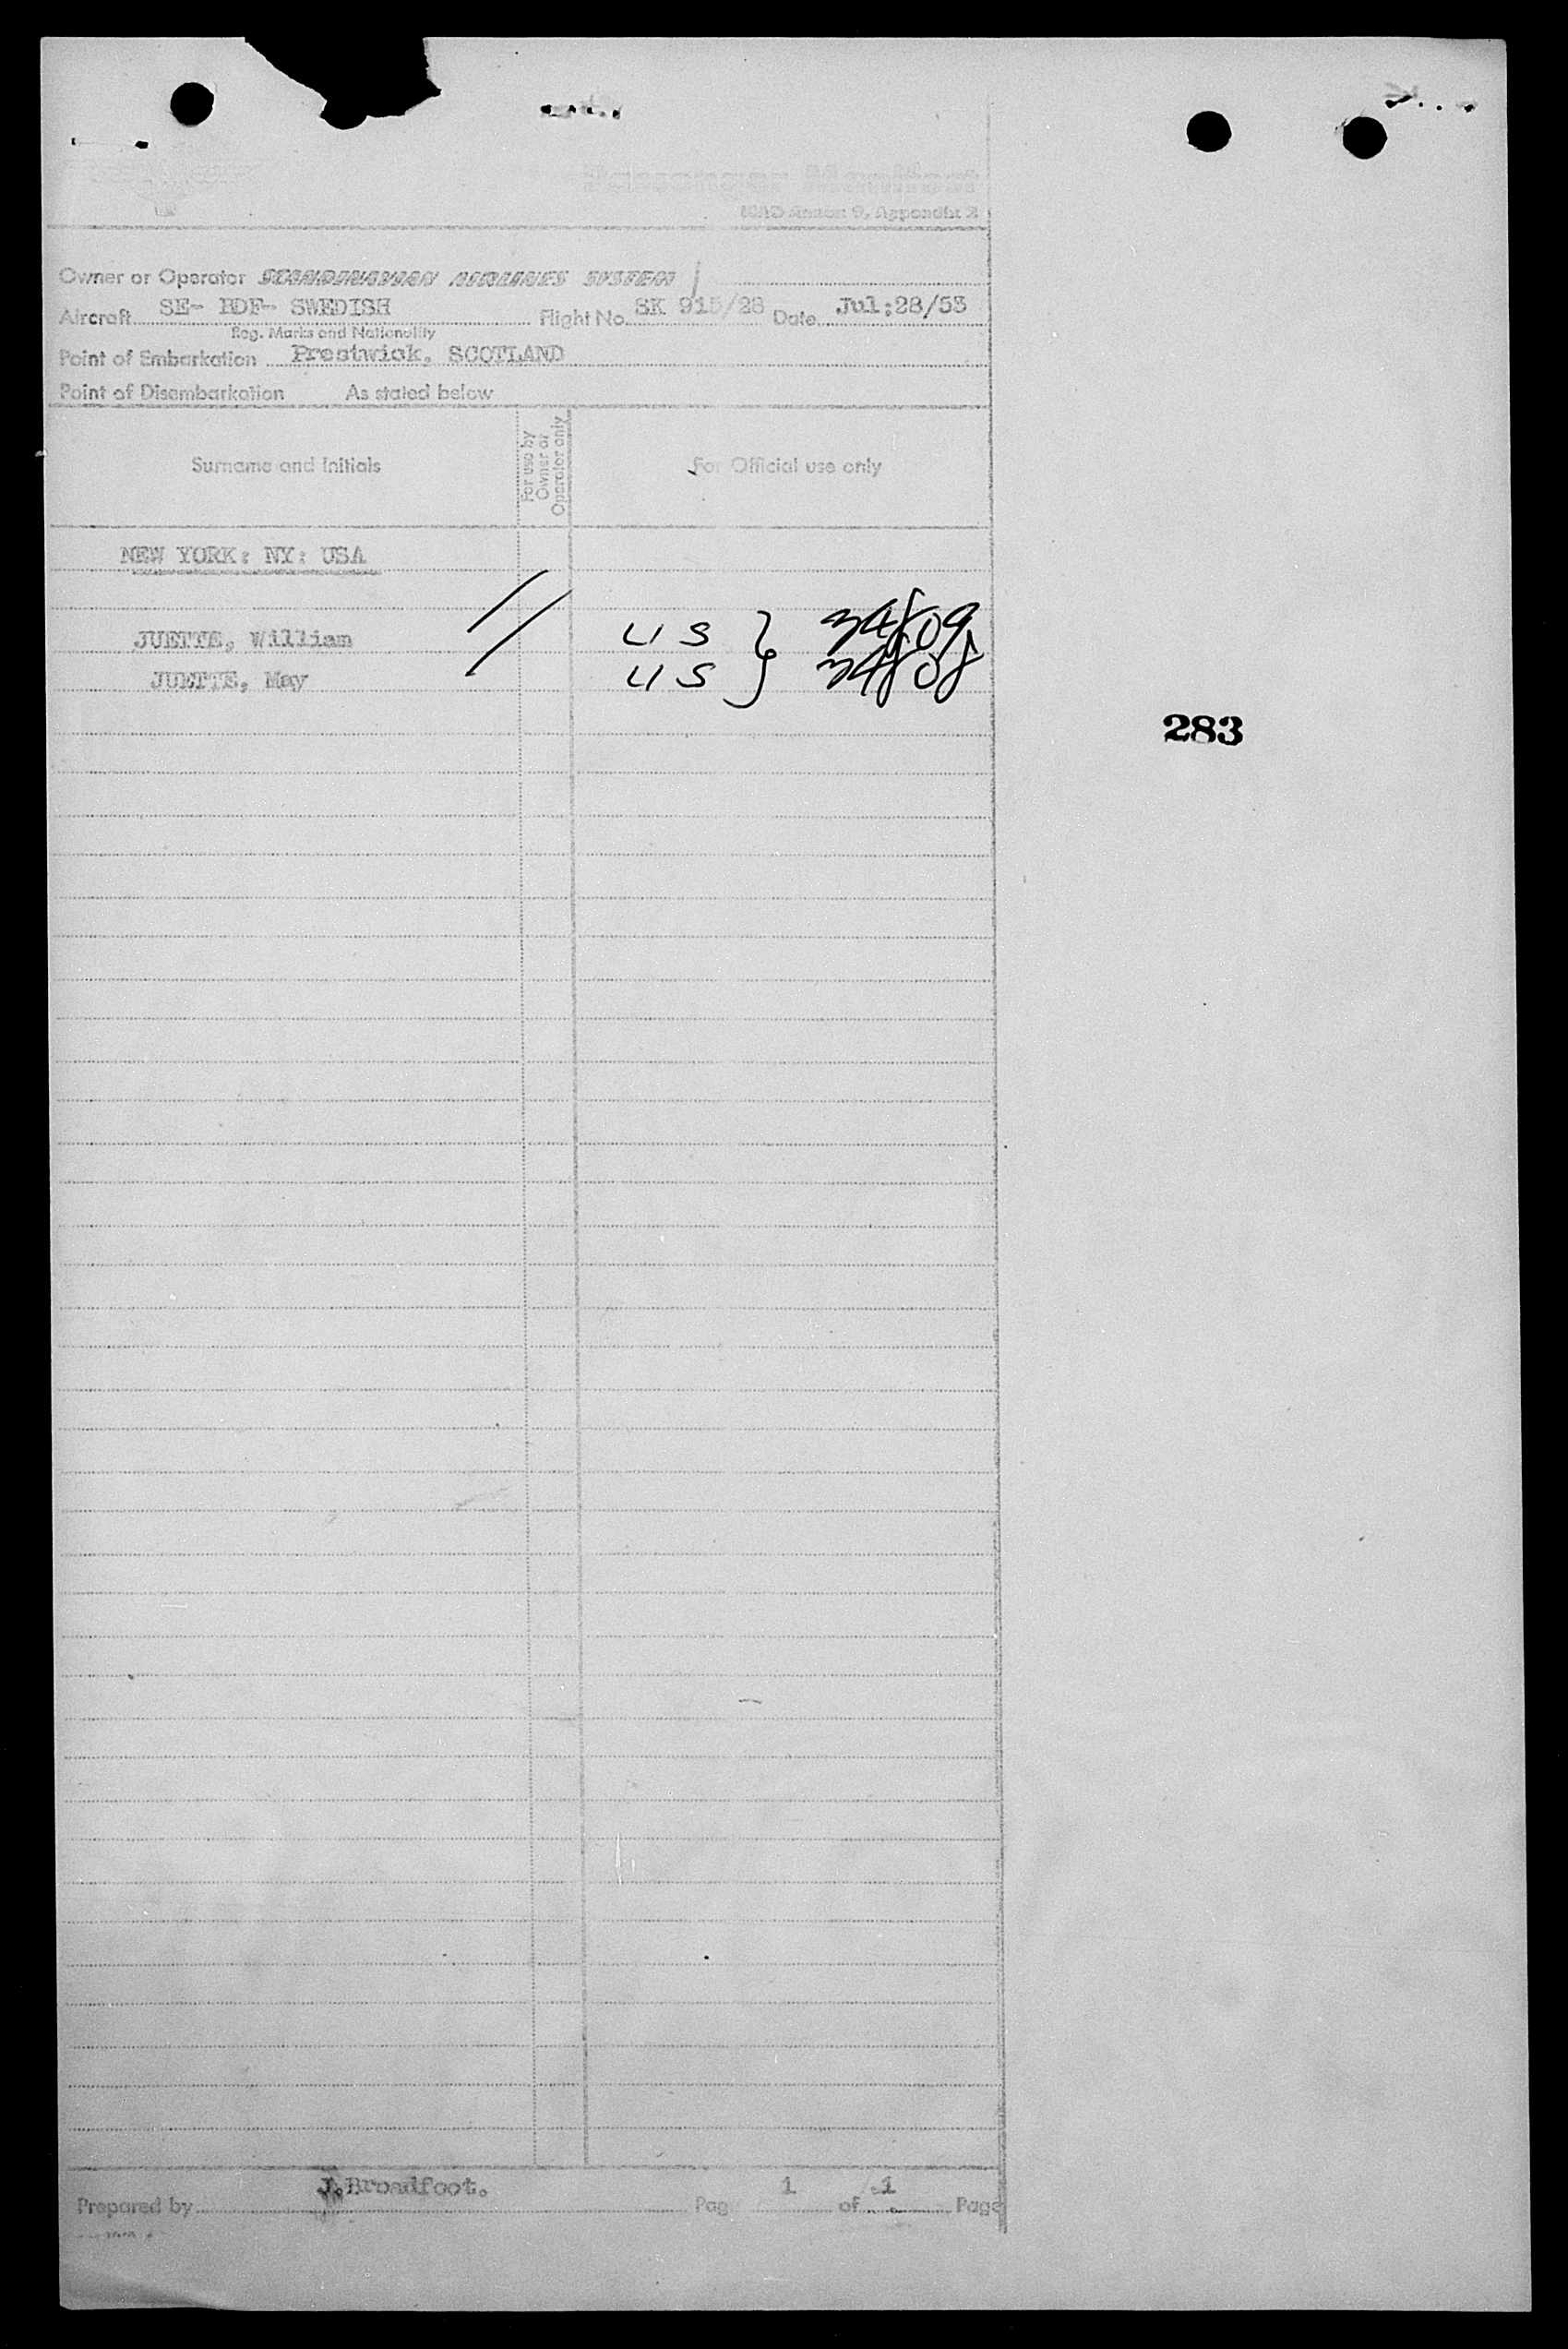 Passenger Manifest
ICAO Annex 9, Appendix 2
Owner or Operator SCANDINAVIAN AIRLINES SYSTEM
Aircraft SE- BDF- SWEDISH Flight No. SK 915/28 Date Jul:28/53
Reg. Marks and Nationality
Point of Embarkation Prestwick, SCOTLAND
Point of Disembarkation As stated below
Surname and Initials For use by Owner or Operator only For Official use only
NEW YORK: NY: USA
JUETTE, William US
JUETTE, May US
283
Prepared by J.Broadfoot. Page 1 of 1 Page